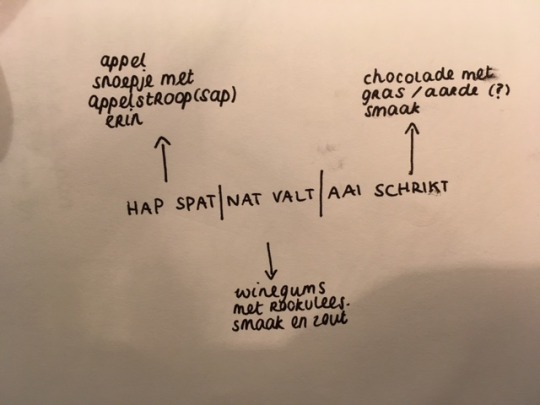 appel
snoepje met
appelstroop(sap)
erin
chocolade met
gras / aarde (?)
smaak
HAP SPAT | NAT VALT | AAI SCHRIKT
winegums
met rookvlees-
smaak en zout